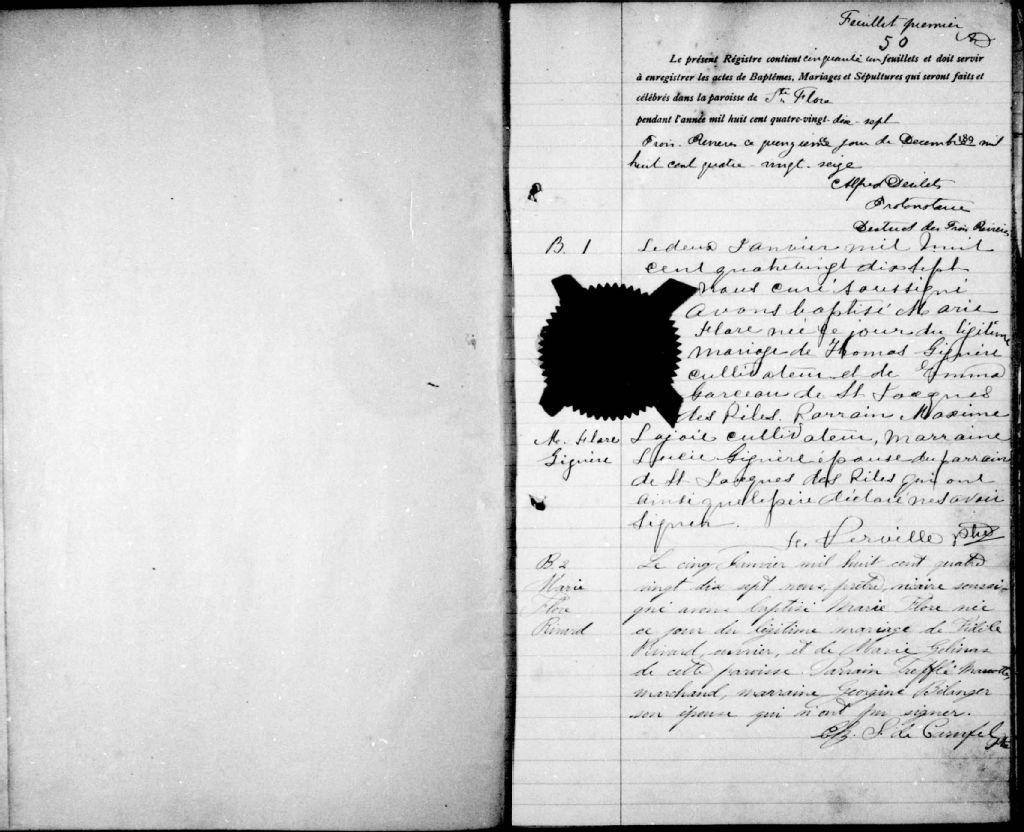 Feuillet premier
50
Le présent Régistre contient cinquante un feuillets et doit servir
à enregistrer les actes de Baptêmes, Mariages et Sépultures qui seront faits et
célébrés dans la paroisse de Ste Flore
pendant l'année mil huit cent quatre-vingt- dix-sept
Trois-Rivieres ce quinzieme jour de Decembre 189 mil
huit cent quatre-vingt-seize
Alfred Desilets
Protonotaire
District des Trois Rivieres
B. 1
Le deux Janvier mil huit
cent quatrevingt dix sept
Nous curé soussigné
avons baptisé Marie
Flore née ce jour du légitime
mariage de Thomas Gignère
cultivateur et de Emma
Garceau de St Jacques
des Piles. Parrain Maxime
M. Flore
Gignère
Lajoie cultivateur, marraine
Lucie Gignère épouse du parrain
de St Jacques des Piles qui ont
ainsi que le père déclaré ne savoir
signer.
Verville ptre
B. 2
Marie
Flore
Rivard
Le cinq Janvier mil huit cent quatre
vingt dix sept nous, prêtre, vicaire soussi-
gné avons baptisé Marie Flore née
ce jour du légitime mariage de Fidèle
Rivard, ouvrier, et de Marie Gélinas
de cette paroisse Parrain Trefflé Marcotte,
marchand, marraine Georgine Bélanger
son épouse qui n'ont pu signer.